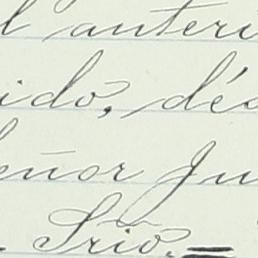 l anteri
ido, dés
eñor Ju
. Srio. =